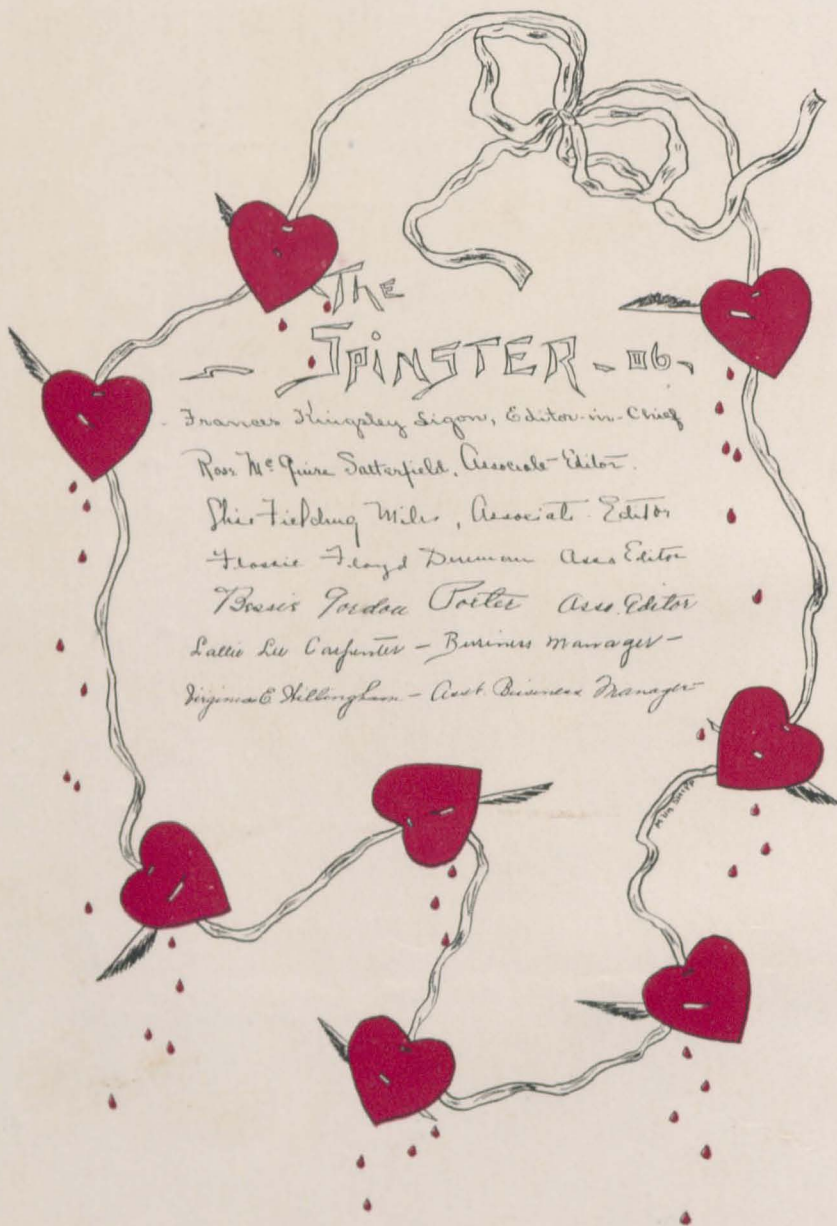 The
SPINSTER - 06 -
Frances Kingsley Ligon, Editor-in-Chief
Rose McGuire Satterfield, Associate-Editor.
Fielding Miles, Associate Editor
Flossie Floyd Asso Editor
Bessie Gordon Porter Asso. Editor
Lallie Lee Carpenter - Business Manager -
Virginia E. Willingham - Asst. Business Manager -